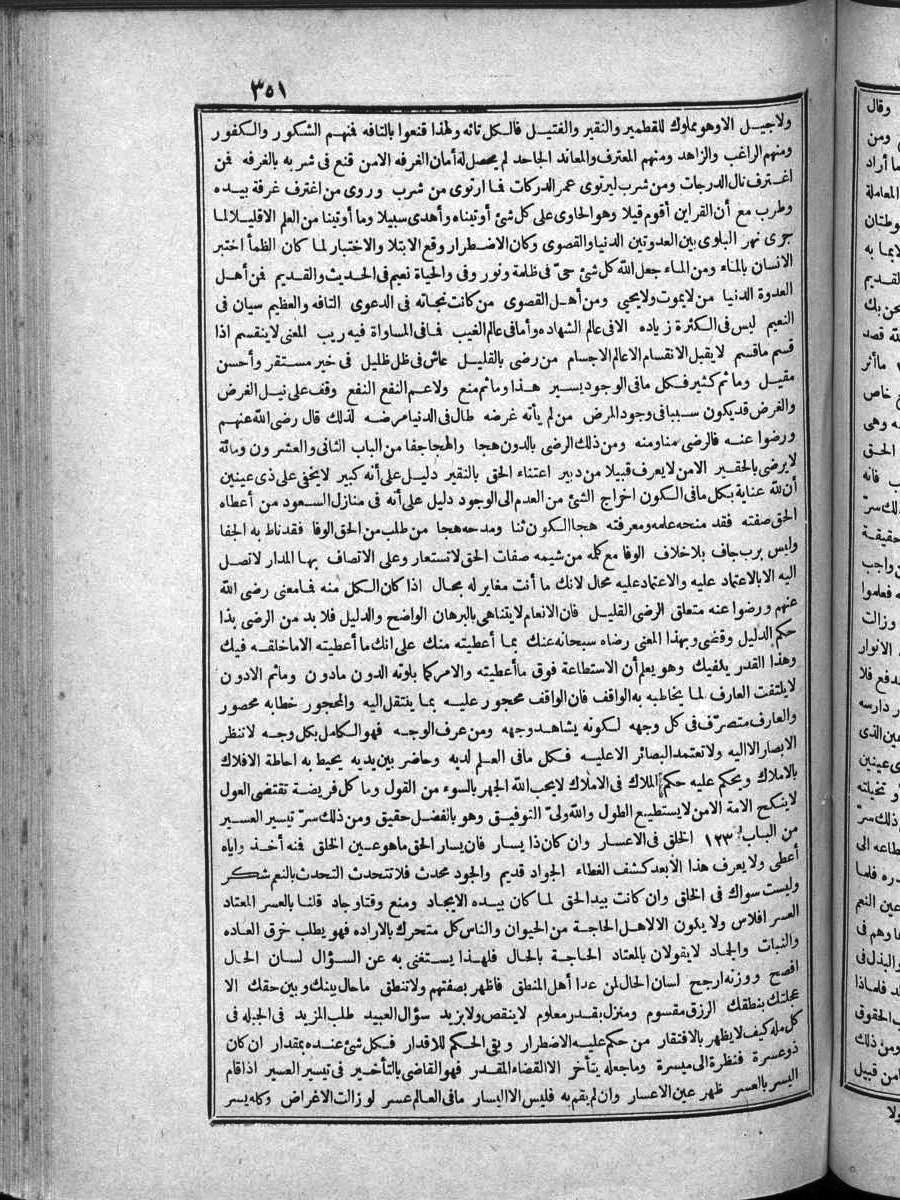 ٣٥١
ولا جيل الا وهو مملوك للقطمير والنقير والفتيل فالكل تائه ولهذا قنعوا بالتافه فمنهم الشكور والكفور
ومنهم الراغب والزاهد ومنهم المعترف والمعاند الجاحد لم يحصل له أمان الغرفه الا من قنع فى شربه بالغرفه فمن
اغترف نال الدرجات ومن شرب ليرتوى عمر الدركات فما ارتوى من شرب وروى من اغترف غرفة بيده
وطرب مع أن القرابن أقوم قيلا وهو الحاوى على كل شئ أوتيناه وأهدى سبيلا وما أوتينا من العلم الا قليلا لما
جرى نهر البلوى بين العدوتين الدنيا والقصوى وكان الاضطرار وقع الابتلا والاختبار لما كان الظمأ اختبر
الانسان بالماء ومن الماء جعل الله كل شئ حىّ فى ظلمة ونور وفى والحياة نعيم فى الحديث والقديم فمن أهل
العدوة الدنيا من لا يموت ولا يحيى ومن أهل القصوى من كانت نجاته فى الدعوى التافه والعظيم سيان فى
النعيم ليس فى الكثرة زياده الا فى عالم الشهاده وأما فى عالم الغيب فما فى المساواة فيه ريب المعنى لا ينقسم اذا
قسم ما قسم لا يقبل الانقسام الا عالم الاجسام من رضى بالقليل عاش فى ظل ظليل فى خير مستقر وأحسن
مقيل وما ثم كثير فكل ما فى الوجود يسير هذا وما ثم منع ولا عم النفع النفع وقف على نيل الغرض
والغرض قد يكون سببا فى وجود المرض من لم يأته غرضه طال فى الدنيا مرضه لذلك قال رضى الله عنهم
ورضوا عنه فالرضى منا ومنه ومن ذلك الرضى بالدون هجا والهجا جفا من الباب الثانى والعشرون ومائة
لا يرضى بالحقير الا من لا يعرف قبيلا من دبير اعتناء الحق بالنقير دليل على أنه كبير لا يخفى على ذى عينين
أن لله عناية بكل ما فى الكون اخراج الشئ من العدم الى الوجود دليل على أنه فى منازل السعود من أعطاه
الحق صفته فقد منحه علمه ومعرفته هجا الكون ثنا ومدحه هجا من طلب من الحق الوفا فقد ناط به الجفا
وليس برب جاف بلا خلاف الوفا مع كمله من شيمه صفات الحق لا تستعار وعلى الاتصاف بها المدار لا تصل
اليه الا بالاعتماد عليه والاعتماد عليه محال لانك ما أنت مغاير له بحال اذا كان الكل منه فما معنى رضى الله
عنهم ورضوا عنه متعلق الرضى القليل فان الانعام لا يتناهى بالبرهان الواضح والدليل فلا بد من الرضى بذا
حكم الدليل وقضى وبهذا المعنى رضاه سبحانه عنك بما أعطيته منك على انك ما أعطيته الا ما خلقه فيك
وهذا القدر يكفيك وهو يعلم أن الاستطاعة فوق ما أعطيته والامر كما بلوته الدون مادون وما ثم الا دون
لا يلتفت العارف لما يخاطبه به الواقف فان الواقف محجور عليه بما ينتقل اليه والمحجور خطابه محصور
والعارف متصرّف فى كل وجهه لكونه يشاهد وجهه ومن عرف الوجه فهو الكامل بكل وجه لا تنظر
الابصار الا اليه ولا تعتمد البصائر الا عليه فكل ما فى العلم لديه وحاضر بين يديه يحيط به احاطة الافلاك
بالاملاك ويحكم عليه حكم الملاك فى الاملاك لا يحب الله الجهر بالسوء من القول وما كل فريضة تقتضى العول
لا ينكح الامة الا من لا يستطيع الطول والله ولىّ التوفيق وهو بالفضل حقيق ومن ذلك سرّ تيسير العسير
من الباب ١٢٣ الخلق فى الاعسار وان كان ذا يسار فان يسار الحق ما هو عين الخلق فمنه أخذ واياه
أعطى ولا يعرف هذا الا بعد كشف الغطاء الجواد قديم والجود محدث فلا تتحدث التحدث بالنعم شكر
وليست سواك فى الخلق وان كانت بيد الحق لما كان بيده الايجاد ومنع وقتا وجاد قلنا بالعسر المعتاد
العسر افلاس ولا يكون الا لاهل الحاجة من الحيوان والناس كل متحرك بالاراده فهو يطلب خرق العاده
والنبات والجماد لا يقولان بالمعتاد الحاجة بالحال فلهذا يستغنى به عن السؤال لسان الحال
افصح ووزنه ارجح لسان الحال لمن عدا أهل المنطق فاظهر بصفتهم ولا تنطق ما حال بينك وبين حقك الا
عجلتك بنطقك الرزق مقسوم ومنزل بقدر معلوم لا ينقص ولا يزيد سؤال العبيد طلب المزيد فى الجبله فى
كل مله كيف لا يظهر بالافتقار من حكم عليه الاضطرار وبقى الحكم للاقدار فكل شئ عنده بمقدار ان كان
ذو عسرة فنظرة الى ميسرة وما جعله يتأخر الا القضاء المقدر فهو القاضى بالتأخير فى تيسير العسير اذا قام
اليسر بالعسر ظهر عين الاعسار وان لم يقم به فليس الا اليسار ما فى العالم عسر لو زالت الاغراض وكله يسر